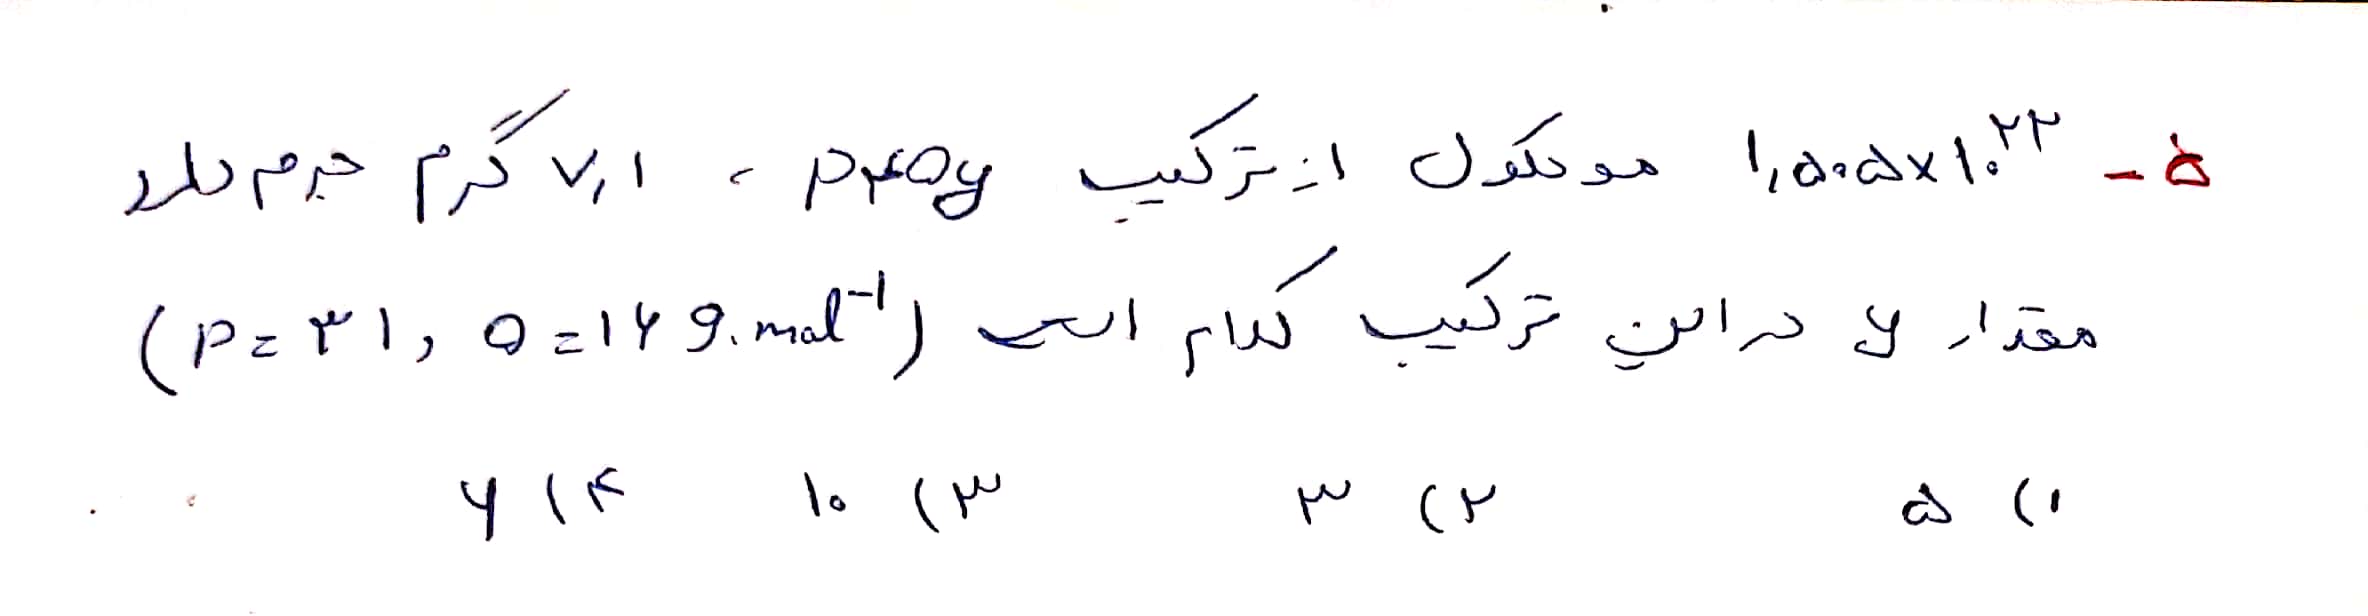 ۵- ۱,۵۰۵×۱۰^۲۲ مولکول از ترکیب P۴Oy ، ۷,۱ گرم جرم دارد
مقدار y در این ترکیب کدام است (P=۳۱, O=۱۶ g.mol^-۱)
۱) ۵ ۲) ۳ ۳) ۱۰ ۴) ۶